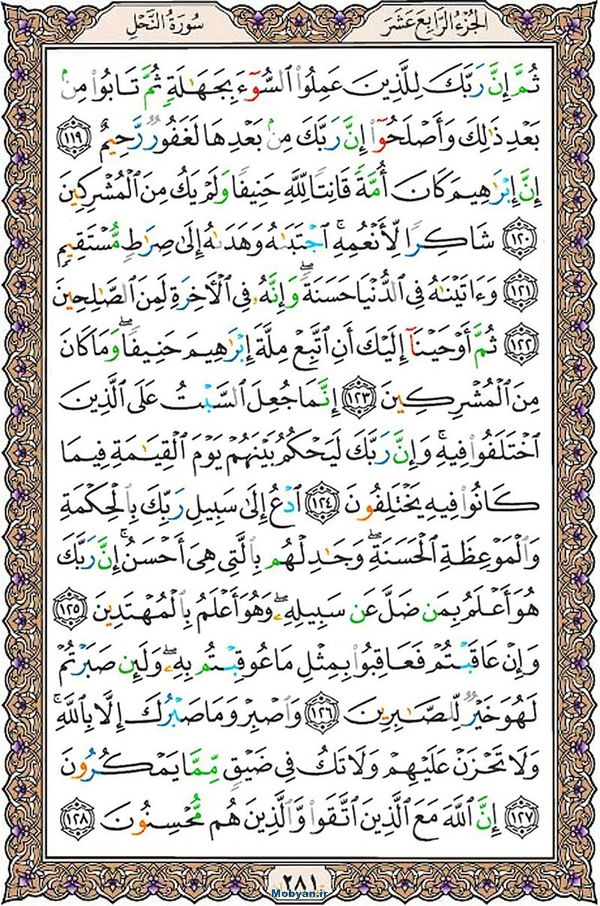 الجُزْءُ الرَّابِعُ عَشَرَ
سُورَةُ النَّحْلِ
ثُمَّ إِنَّ رَبَّكَ لِلَّذِينَ عَمِلُوا۟ ٱلسُّوٓءَ بِجَهَـٰلَةٍ ثُمَّ تَابُوا۟ مِنۢ
بَعْدِ ذَٰلِكَ وَأَصْلَحُوٓا۟ إِنَّ رَبَّكَ مِنۢ بَعْدِهَا لَغَفُورٌ رَّحِيمٌ ١١٩
إِنَّ إِبْرَٰهِيمَ كَانَ أُمَّةً قَانِتًا لِّلَّهِ حَنِيفًا وَلَمْ يَكُ مِنَ ٱلْمُشْرِكِينَ
١٢٠ شَاكِرًا لِّأَنْعُمِهِ ۚ ٱجْتَبَىٰهُ وَهَدَىٰهُ إِلَىٰ صِرَٰطٍ مُّسْتَقِيمٍ
١٢١ وَءَاتَيْنَـٰهُ فِى ٱلدُّنْيَا حَسَنَةً ۖ وَإِنَّهُۥ فِى ٱلْـَٔاخِرَةِ لَمِنَ ٱلصَّـٰلِحِينَ
١٢٢ ثُمَّ أَوْحَيْنَآ إِلَيْكَ أَنِ ٱتَّبِعْ مِلَّةَ إِبْرَٰهِيمَ حَنِيفًا ۖ وَمَا كَانَ
مِنَ ٱلْمُشْرِكِينَ ١٢٣ إِنَّمَا جُعِلَ ٱلسَّبْتُ عَلَى ٱلَّذِينَ
ٱخْتَلَفُوا۟ فِيهِ ۚ وَإِنَّ رَبَّكَ لَيَحْكُمُ بَيْنَهُمْ يَوْمَ ٱلْقِيَـٰمَةِ فِيمَا
كَانُوا۟ فِيهِ يَخْتَلِفُونَ ١٢٤ ٱدْعُ إِلَىٰ سَبِيلِ رَبِّكَ بِٱلْحِكْمَةِ
وَٱلْمَوْعِظَةِ ٱلْحَسَنَةِ ۖ وَجَـٰدِلْهُم بِٱلَّتِى هِىَ أَحْسَنُ ۚ إِنَّ رَبَّكَ
هُوَ أَعْلَمُ بِمَن ضَلَّ عَن سَبِيلِهِۦ ۖ وَهُوَ أَعْلَمُ بِٱلْمُهْتَدِينَ ١٢٥
وَإِنْ عَاقَبْتُمْ فَعَاقِبُوا۟ بِمِثْلِ مَا عُوقِبْتُم بِهِۦ ۖ وَلَئِن صَبَرْتُمْ
لَهُوَ خَيْرٌ لِّلصَّـٰبِرِينَ ١٢٦ وَٱصْبِرْ وَمَا صَبْرُكَ إِلَّا بِٱللَّهِ ۚ
وَلَا تَحْزَنْ عَلَيْهِمْ وَلَا تَكُ فِى ضَيْقٍ مِّمَّا يَمْكُرُونَ
١٢٧ إِنَّ ٱللَّهَ مَعَ ٱلَّذِينَ ٱتَّقَوا۟ وَّٱلَّذِينَ هُم مُّحْسِنُونَ ١٢٨
٢٨١
Mobyan.ir